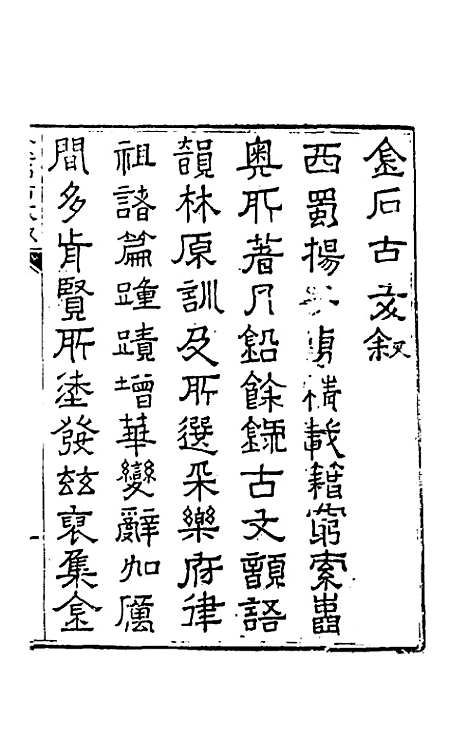 金石古文叙
西蜀揚子專精載籍窮索幽
奧所著丹鉛餘錄古文韻語
韻林原訓及所選采樂府律
祖諸篇踵蹟增華變辭加厲
間多肯賢所塗發玆裒集金